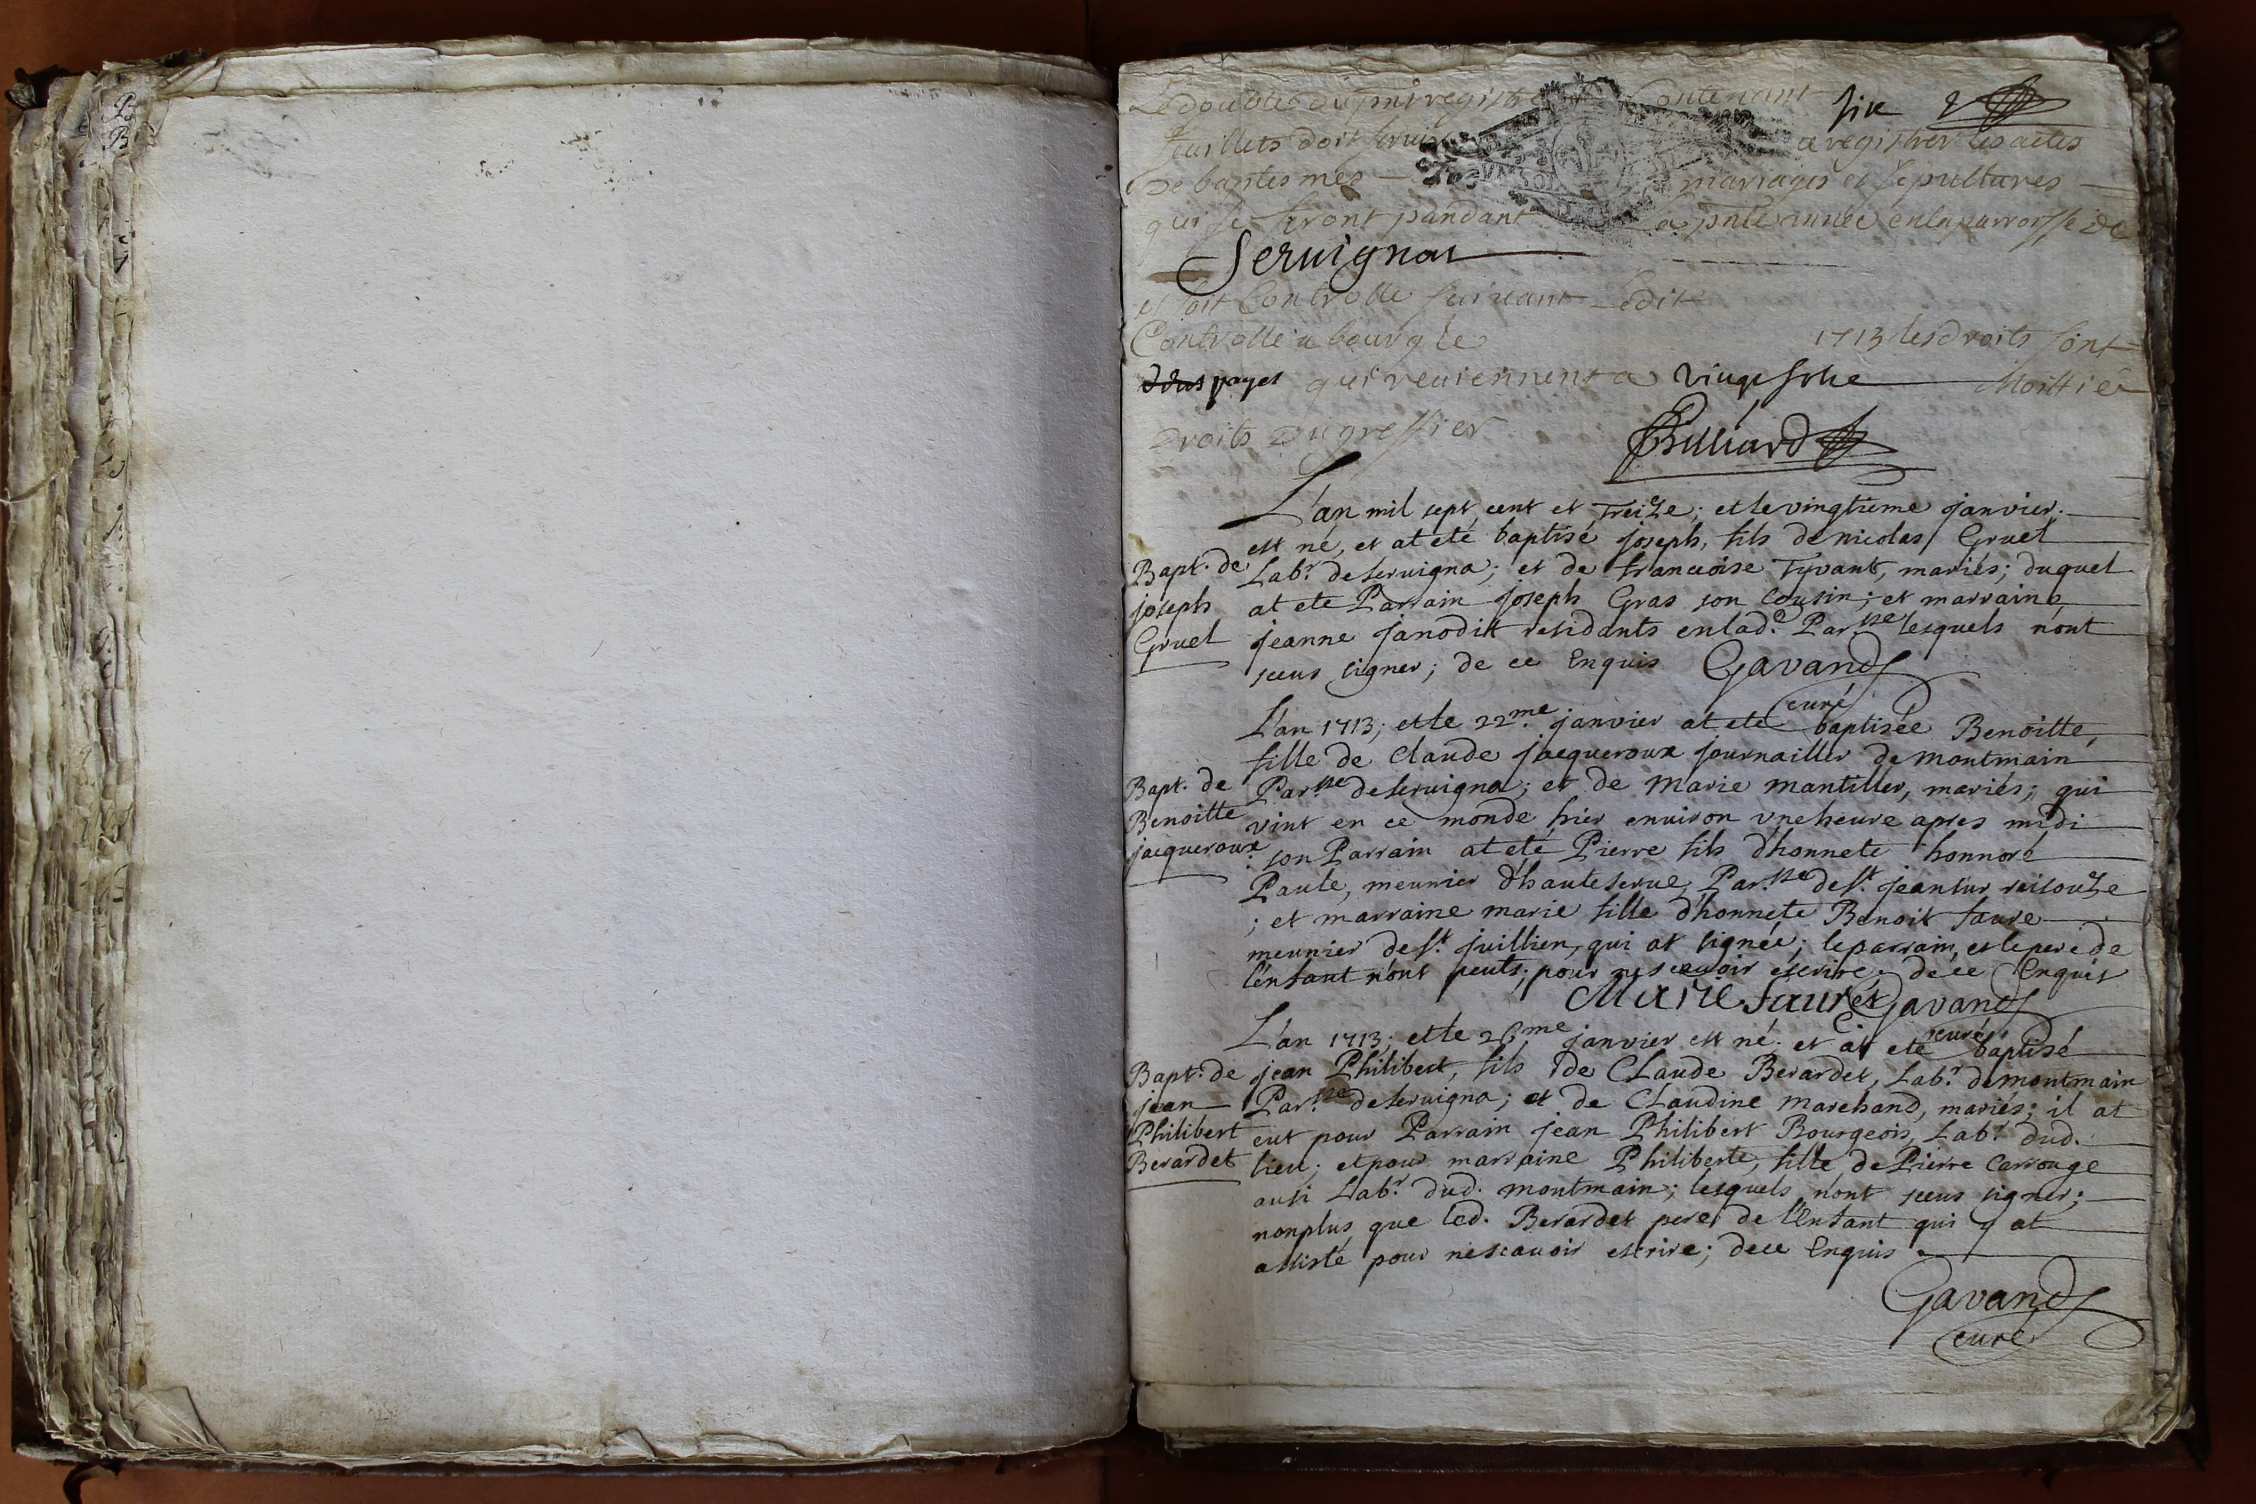 P
B
Le double du pnt registre Contenant six
feuillets doit servir a registrer les actes
De baptesmes mariages et sepultures
qui se feront pandant la pnte année en la parroisse de
Servignat
et soit Controllé suivant Ledit
Controllé a bourg le 1713 les droits sont
payes qui reviennent a vingt solz Moittié
Droits du greffier
Billiard
L'an mil sept cent et treize; et le vingtieme janvier.
est né, et at eté baptisé joseph, fils de nicolas Gruel
Labr. de servigna; et de francoise Tyvant, mariés; duquel
at eté Parrain joseph Gras son cousin; et marraine
jeanne janodit residants en lad.e Par.sse lesquels n'ont
sceus signer; de ce Enquis Gavand
curé
Bapt. de
joseph
Gruel
L'an 1713; et le 22me. janvier at eté baptisée Benoitte,
fille de Claude jacqueroux journailler de montmain
Par.sse de servigna; et de Marie mantiller, mariés; qui
vint en ce monde hier environ vne heure apres midi
son Parrain at eté Pierre fils d'honnete honnoré
Paule, meunier d'hauteserve, Par.sse de st. jean sur reisouze
; et marraine marie fille d'honnete Benoit faure
meunier de st. juillien, qui at signée; le parrain, et le pere de
l'enfant n'ont peuts, pour ne scavoir escrire. de ce Enquis
Marie faure Gavand
curé
Bapt. de
Benoitte
jacqueroux
L'an 1713; et le 26me janvier est né. et at eté baptisé
jean Philibert, fils de Claude Berardet, Labr. de montmain
Par.sse de servigna; et de Claudine marchand, mariés; il at
eut pour Parrain jean Philibert Bourgeois, Labr. dud.
lieu; et pour marraine Philiberte, fille de Pierre Carrouge
ausi Labr. dud. montmain; lesquels n'ont sceus signer;
nonplus que led. Berardet pere de l'Enfant qui y at
assisté pour ne scavoir escrire; de ce Enquis.
Bapt. de
jean
Philibert
Berardet
Gavand
curé